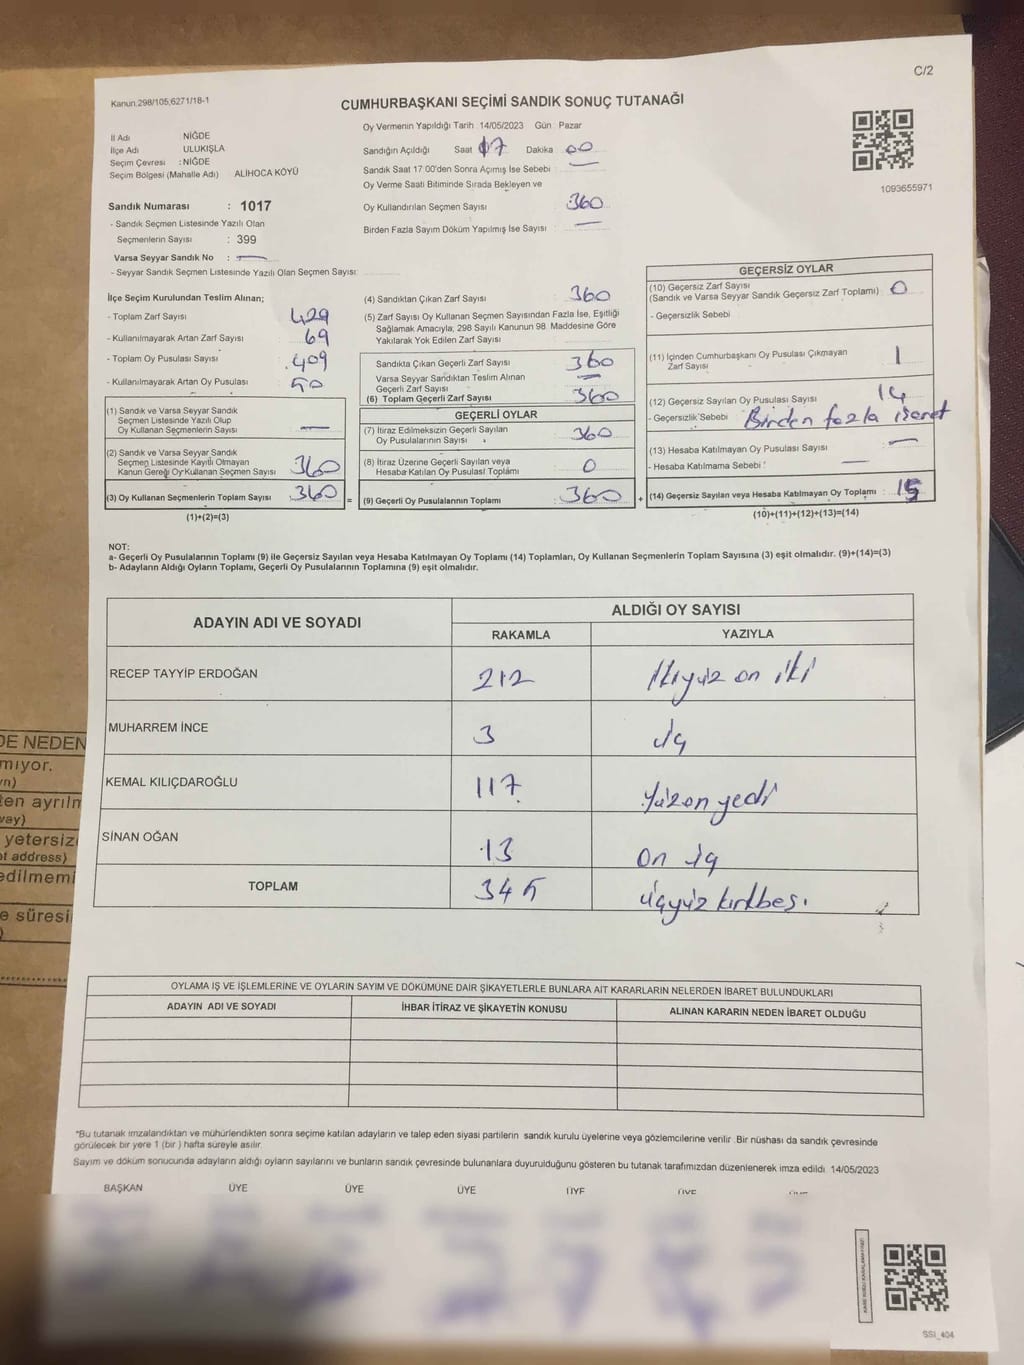 C/2
Kanun.298/105;6271/18-1
CUMHURBAŞKANI SEÇİMİ SANDIK SONUÇ TUTANAĞI
İl Adı NİĞDE
İlçe Adı ULUKIŞLA
Seçim Çevresi : NİĞDE
Seçim Bölgesi (Mahalle Adı) ALİHOCA KÖYÜ
Sandık Numarası : 1017
- Sandık Seçmen Listesinde Yazılı Olan
Seçmenlerin Sayısı : 399
Varsa Seyyar Sandık No : —
- Seyyar Sandık Seçmen Listesinde Yazılı Olan Seçmen Sayısı:
Oy Vermenin Yapıldığı Tarih 14/05/2023 Gün : Pazar
Sandığın Açıldığı Saat 17 Dakika 00
Sandık Saat 17:00'den Sonra Açımış İse Sebebi —
Oy Verme Saati Bitiminde Sırada Bekleyen ve
Oy Kullandırılan Seçmen Sayısı 360
Birden Fazla Sayım Döküm Yapılmış İse Sayısı —
1093655971
İlçe Seçim Kurulundan Teslim Alınan;
- Toplam Zarf Sayısı 429
- Kullanılmayarak Artan Zarf Sayısı 69
- Toplam Oy Pusulası Sayısı 409
- Kullanılmayarak Artan Oy Pusulası 50
(1) Sandık ve Varsa Seyyar Sandık
Seçmen Listesinde Yazılı Olup
Oy Kullanan Seçmenlerin Sayısı —
(2) Sandık ve Varsa Seyyar Sandık
Seçmen Listesinde Kayıtlı Olmayan
Kanun Gereği Oy Kullanan Seçmen Sayısı 360
(3) Oy Kullanan Seçmenlerin Toplam Sayısı 360 =
(1)+(2)=(3)
(4) Sandıktan Çıkan Zarf Sayısı 360
(5) Zarf Sayısı Oy Kullanan Seçmen Sayısından Fazla İse, Eşitliği
Sağlamak Amacıyla; 298 Sayılı Kanunun 98. Maddesine Göre
Yakılarak Yok Edilen Zarf Sayısı
Sandıkta Çıkan Geçerli Zarf Sayısı 360
Varsa Seyyar Sandıktan Teslim Alınan
Geçerli Zarf Sayısı —
(6) Toplam Geçerli Zarf Sayısı 360
GEÇERLİ OYLAR
(7) İtiraz Edilmeksizin Geçerli Sayılan
Oy Pusulalarının Sayısı 360
(8) İtiraz Üzerine Geçerli Sayılan veya
Hesaba Katılan Oy Pusulası Toplamı 0
(9) Geçerli Oy Pusulalarının Toplamı 360 +
GEÇERSİZ OYLAR
(10) Geçersiz Zarf Sayısı
(Sandık ve Varsa Seyyar Sandık Geçersiz Zarf Toplamı) 0
- Geçersizlik Sebebi
(11) İçinden Cumhurbaşkanı Oy Pusulası Çıkmayan
Zarf Sayısı 1
(12) Geçersiz Sayılan Oy Pusulası Sayısı 14
- Geçersizlik Sebebi Birden fazla işaret
(13) Hesaba Katılmayan Oy Pusulası Sayısı —
- Hesaba Katılmama Sebebi : —
(14) Geçersiz Sayılan veya Hesaba Katılmayan Oy Toplamı : 15
(10)+(11)+(12)+(13)=(14)
NOT:
a- Geçerli Oy Pusulalarının Toplamı (9) ile Geçersiz Sayılan veya Hesaba Katılmayan Oy Toplamı (14) Toplamları, Oy Kullanan Seçmenlerin Toplam Sayısına (3) eşit olmalıdır. (9)+(14)=(3)
b- Adayların Aldığı Oyların Toplamı, Geçerli Oy Pusulalarının Toplamına (9) eşit olmalıdır.
ADAYIN ADI VE SOYADI ALDIĞI OY SAYISI
RAKAMLA YAZIYLA
RECEP TAYYİP ERDOĞAN 212 İkiyüz on iki
MUHARREM İNCE 3 üç
KEMAL KILIÇDAROĞLU 117 Yüzonyedi
SİNAN OĞAN 13 On üç
TOPLAM 345 üçyüz kırkbeş.
OYLAMA İŞ VE İŞLEMLERİNE VE OYLARIN SAYIM VE DÖKÜMÜNE DAİR ŞİKAYETLERLE BUNLARA AİT KARARLARIN NELERDEN İBARET BULUNDUKLARI
ADAYIN ADI VE SOYADI İHBAR İTİRAZ VE ŞİKAYETİN KONUSU ALINAN KARARIN NEDEN İBARET OLDUĞU
*Bu tutanak imzalandıktan ve mühürlendikten sonra seçime katılan adayların ve talep eden siyasi partilerin sandık kurulu üyelerine veya gözlemcilerine verilir. Bir nüshası da sandık çevresinde
görülecek bir yere 1 (bir ) hafta süreyle asılır.
Sayım ve döküm sonucunda adayların aldığı oyların sayılarını ve bunların sandık çevresinde bulunanlara duyurulduğunu gösteren bu tutanak tarafımızdan düzenlenerek imza edildi. 14/05/2023
BAŞKAN ÜYE ÜYE ÜYE ÜYE ÜYE
SSI_404
DE NEDEN
mıyor.
yn)
ten ayrılm
way)
yetersiz
ot address)
edilmemi
e süresi